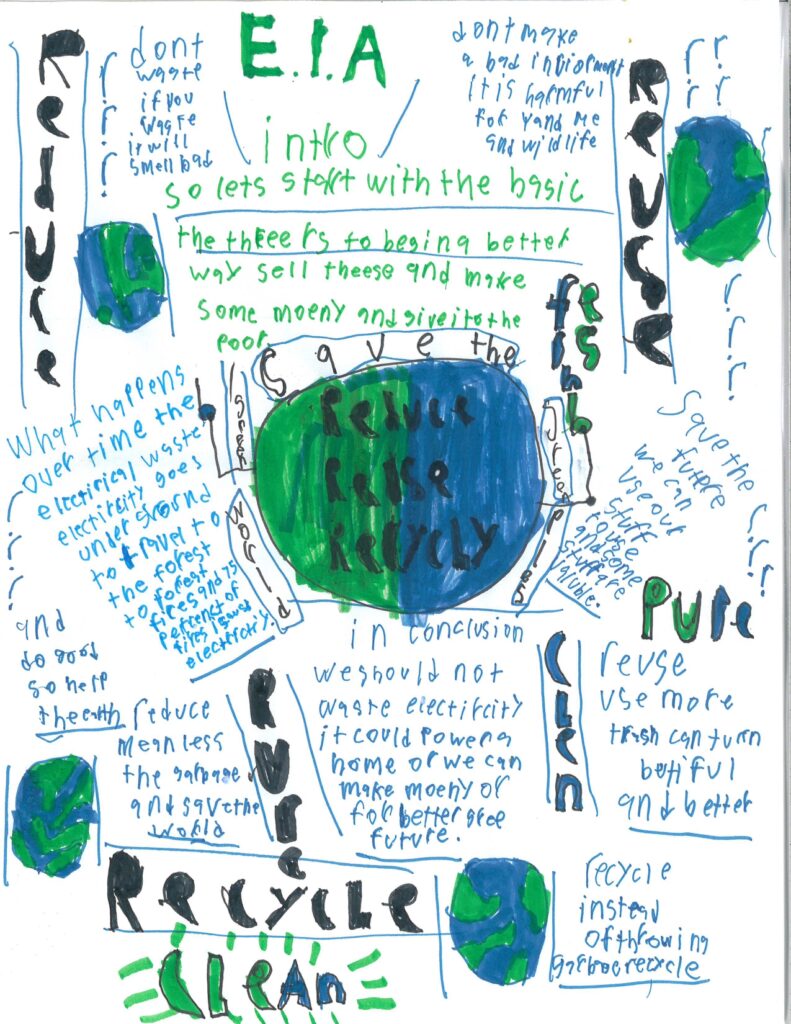 E.I.A
intro
so lets start with the basic
the threer rs to beging better
way sell theese and make
some moeny and give it to the
poor
Reduce
dont
waste
if you
waste
it will
smell bad
r r r r
dont make
a bad inviorment
It is harmful
for yand me
and wildlife
r r r r
Reuse
Save the
green
world
Reduce
Reuse
Recycly
r.r.r.
What happens
over time the
electirical waste
electircity goes
under ground
to travel to
the forest
to forest
fires and 75
percenct of
electricity.
r r r r
Save the
future
we can
use our
stuff
to use
and some
stuff are
valuble.
r.r.r.
Pure
and
do good
so help
the earth
reduce
mean less
the garbage
and save the
world
Pure
in conclusion
we should not
waste electircity
it could power a
home or we can
make moeny or
for better gree
future.
Clen
reuse
use more
trash can turn
betiful
and better
Recycle
Clean
recycle
instead
of throwing
garbage recycle